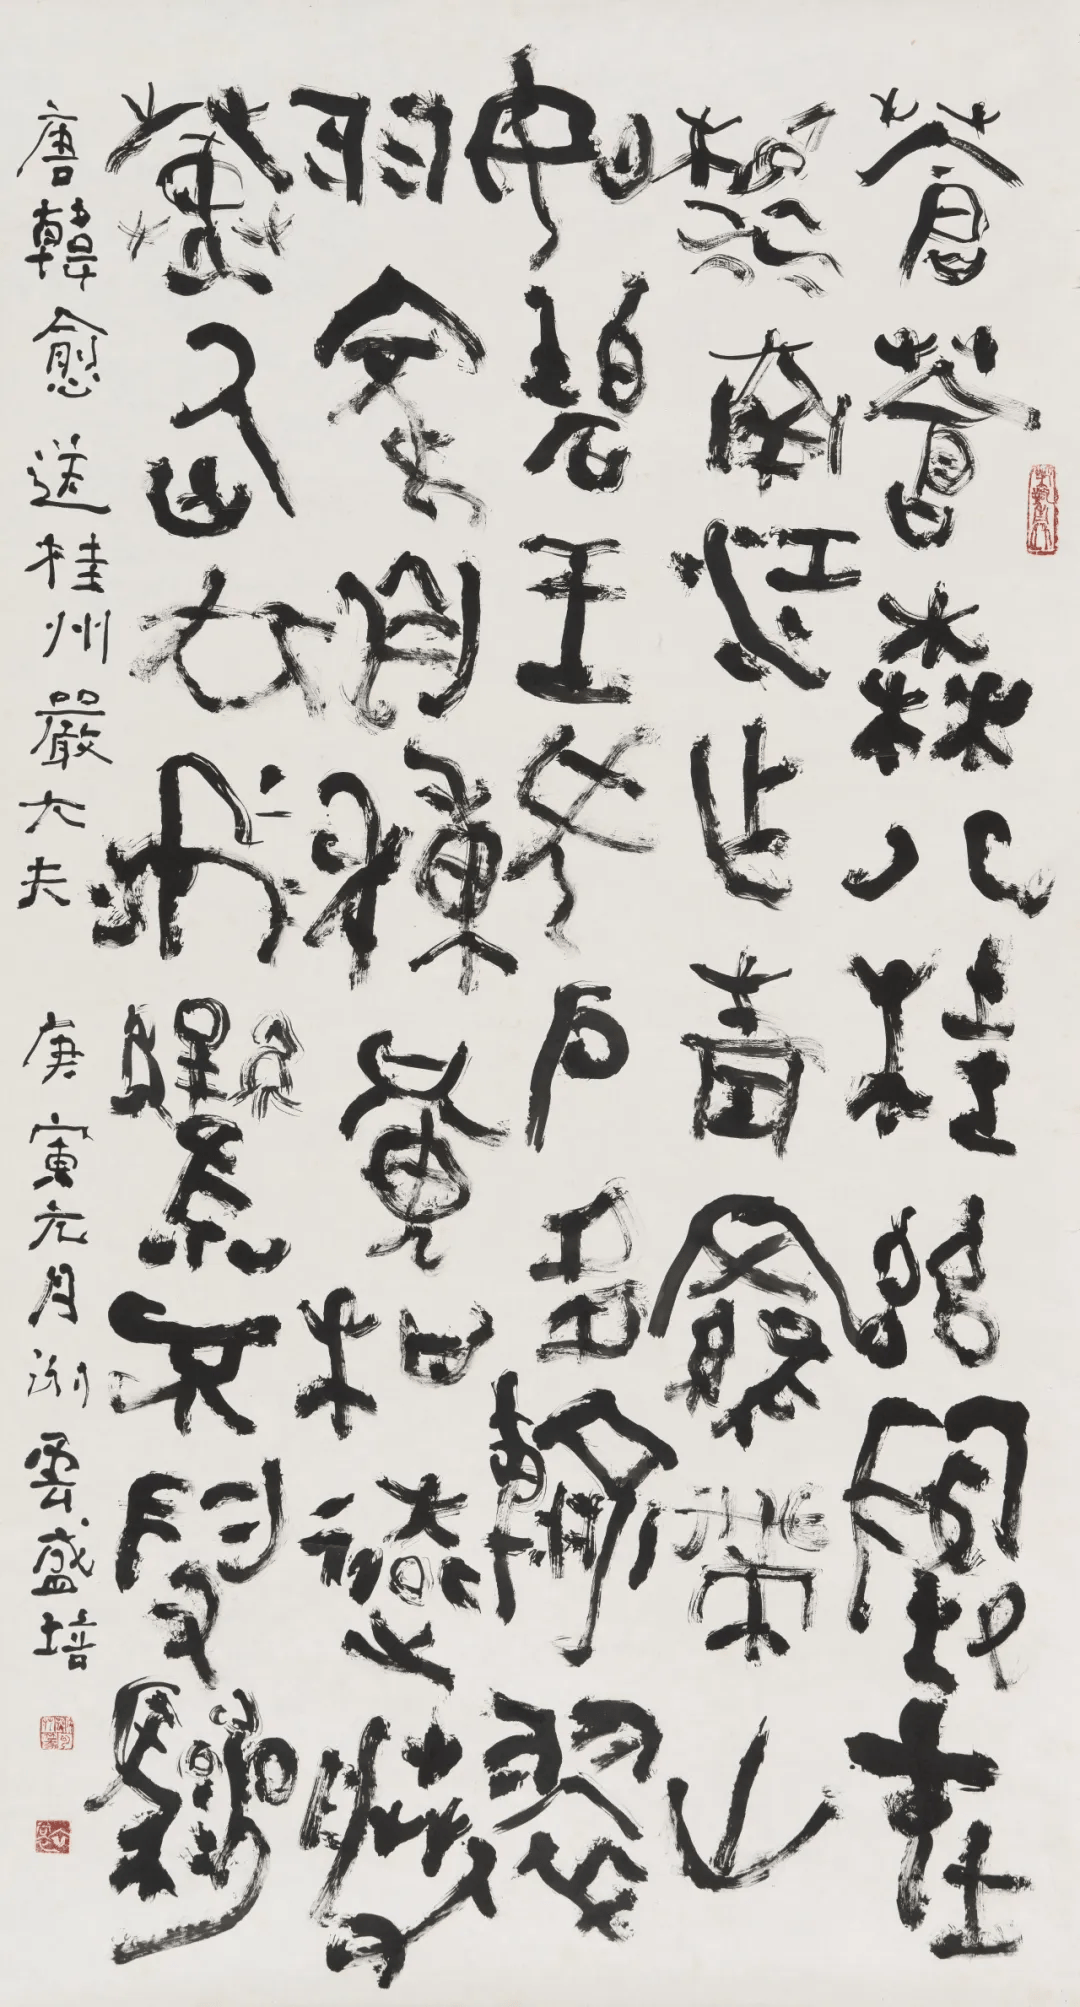 蒼蒼森八桂茲地在
湘南江作青羅帶山
如碧玉簪戶多輸翠
羽家自種黃柑遠勝
登仙去飛鸞不假驂
唐韓愈送桂州嚴大夫 庚寅元月 雲盛培